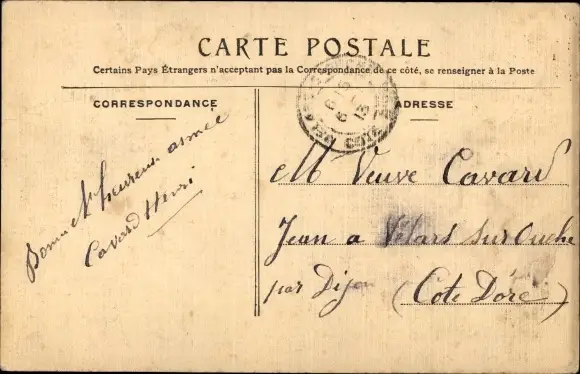 CARTE POSTALE
Certains Pays Étrangers n'acceptant pas la Correspondance de ce côté, se renseigner à la Poste
CORRESPONDANCE
Bonne et heureuse année
Cavard Henri
ADRESSE
M Veuve Cavard
Jean a Vélars sur Ouche
par Dijon (Cote Dore)